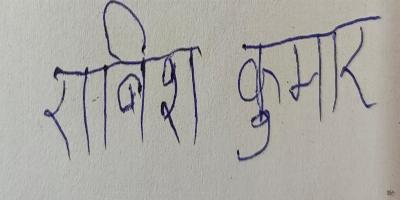 राबिश कुमार